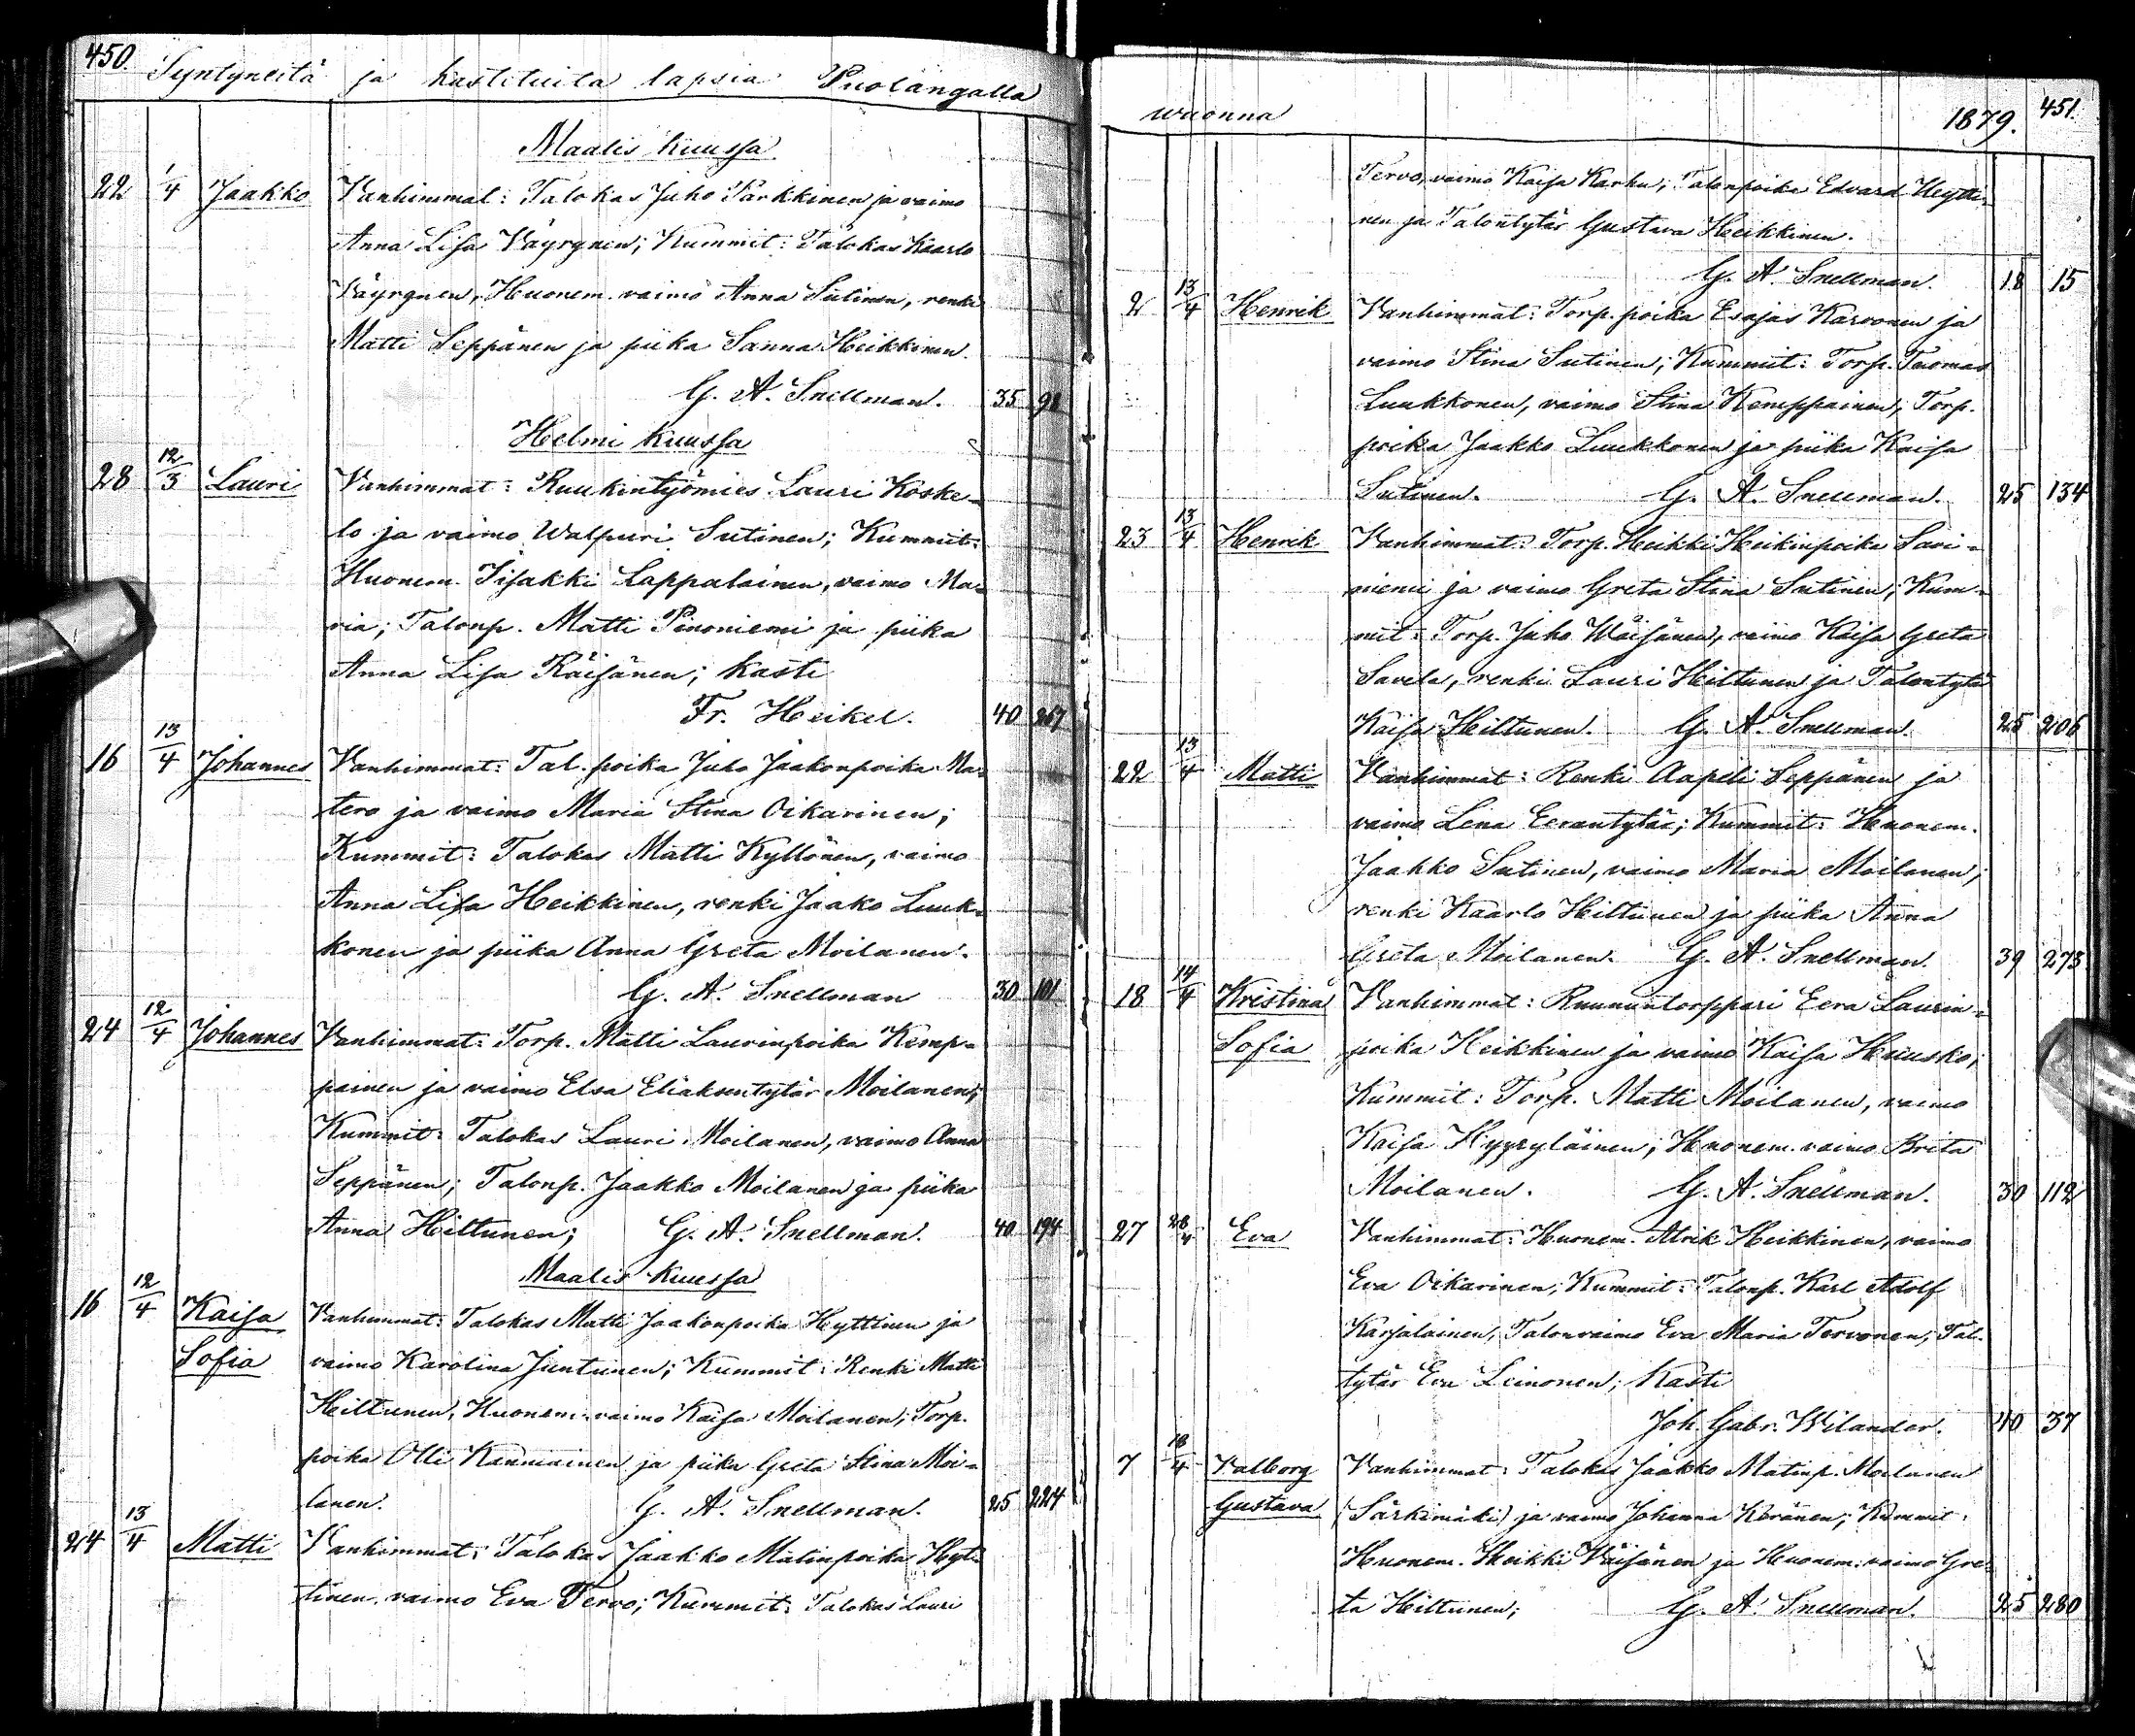 450.
Syntyneitä ja kastetuita lapsia Puolangalla
Maalis kuussa
22 1/4 Jaakko Vanhimmat: Talokas Juho Parkkinen ja vaimo
Anna Lisa Väyrynen; Kummit: Talokas Kaarlo
Väyrynen, Huonem. vaimo Anna Sutinen, renki
Matti Seppänen ja piika Sanna Heikkinen.
G. A. Snellman. 35 98
Helmi kuussa
28 12/3 Lauri Vanhimmat: Ruukintyömies Lauri Koske-
lo ja vaimo Walpuri Sutinen; Kummit:
Huonem. Iisakki Lappalainen, vaimo Ma-
ria; Talonp. Matti Pinoniemi ja piika
Anna Lisa Räisänen; kasti
Fr. Heikel. 40 267
16 13/4 Johannes Vanhimmat: Tal. poika Juho Jaakonpoika Ma-
tero ja vaimo Maria Stina Oikarinen;
Kummit: Talokas Matti Kyllönen, vaimo
Anna Lisa Heikkinen, renki Jaako Luuk-
konen ja piika Anna Greta Moilanen.
G. A. Snellman 30 101
24 12/4 Johannes Vanhimmat: Torp. Matti Laurinpoika Kemp-
painen ja vaimo Elsa Eliaksentytär Moilanen;
Kummit: Talokas Lauri Moilanen, vaimo Anna
Seppänen; Talonp. Jaakko Moilanen ja piika
Anna Hiltunen; G. A. Snellman. 40 194
Maalis kuussa
16 12/4 Kaisa Vanhimmat: Talokas Matti Jaakonpoika Hyttinen ja
Sofia vaimo Karolina Juntunen; Kummit: Renki Matti
Hiltunen, Huonem. vaimo Kaisa Moilanen; Torp.
poika Olli Kanniainen ja piika Greta Stina Moi-
lanen. G. A. Snellman. 25 224
24 13/4 Matti Vanhimmat: Talokas Jaakko Matinpoika Hyt-
tinen, vaimo Eva Tervo; Kummit: Talokas Lauri
wuonna 1879. 451.
Tervo, vaimo Kaisa Karhu; Talonpoika Edvard Hytti-
nen ja Talontytär Gustava Heikkinen.
G. A. Snellman. 18 15
2 13/4 Henrik Vanhimmat: Torp. poika Esajas Karvonen ja
vaimo Stina Sutinen; Kummit: Torp. Tuomas
Luukkonen, vaimo Stina Kemppainen, Torp.
poika Jaakko Luukkonen ja piika Kaisa
Sutinen. G. A. Snellman. 25 134
23 13/4 Henrik Vanhimmat: Torp. Heikki Heikinpoika Savi-
niemi ja vaimo Greta Stina Sutinen; Kum-
mit: Torp. Juho Wäisänen, vaimo Kaisa Greta
Savela, renki Lauri Hiltunen ja Talontytär
Kaisa Hiltunen. G. A. Snellman. 25 206
22 13/4 Matti Vanhimmat: Renki Aapeli Seppänen ja
vaimo Lena Eerantytär; Kummit: Huonem.
Jaakko Sutinen, vaimo Maria Moilanen;
renki Kaarlo Hiltunen ja piika Anna
Greta Moilanen. G. A. Snellman. 39 273
18 14/4 Kristina Vanhimmat: Ruununtorppari Eera Laurin-
Sofia poika Heikkinen ja vaimo Kaisa Huusko;
Kummit: Torp. Matti Moilanen, vaimo
Kaisa Hyyryläinen; Huonem. vaimo Brita
Moilanen. G. A. Snellman. 30 112
27 28/4 Eva Vanhimmat: Huonem. Alrik Heikkinen, vaimo
Eva Oikarinen; Kummit: Talonp. Karl Adolf
Karjalainen, Talonvaimo Eva Maria Tervonen, Tal.
tytär Eva Leinonen; Kasti
Joh. Gabr. Wilander. 40 37
7 18/4 Valborg Vanhimmat: Talokas Jaakko Matinp. Moilanen
Gustava (Särkimäki) ja vaimo Johanna Keränen; Kummit:
Huonem. Heikki Väisänen ja Huonem. vaimo Gre-
ta Hiltunen; G. A. Snellman. 25 280